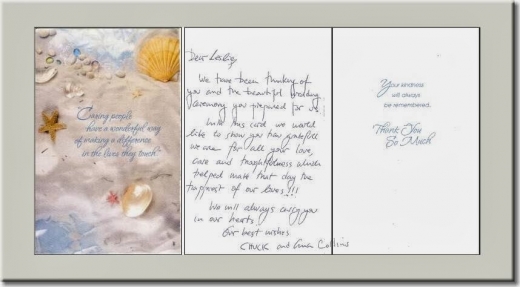 Caring people
have a wonderful way
of making a difference
in the lives they touch.
Dear Leslie,
We have been thinking of
you and the beautiful wedding
ceremony you prepared for us!
With this card we would
like to show you how gratefull
we are for all your love,
care and thoughtfulness which
helped make that day the
happiest of our lives!!!
We will always carry you
in our hearts!
Our best wishes
Chuck and Collins
Your kindness
will always
be remembered.
Thank You
So Much